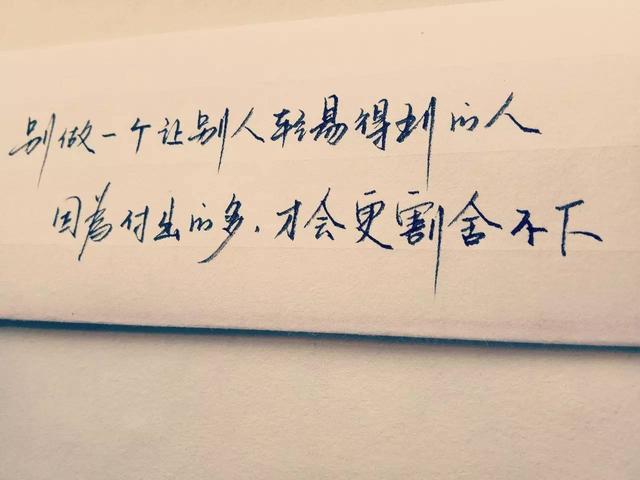 别做一个让别人轻易得到的人
因為付出的多，才会更割舍不下